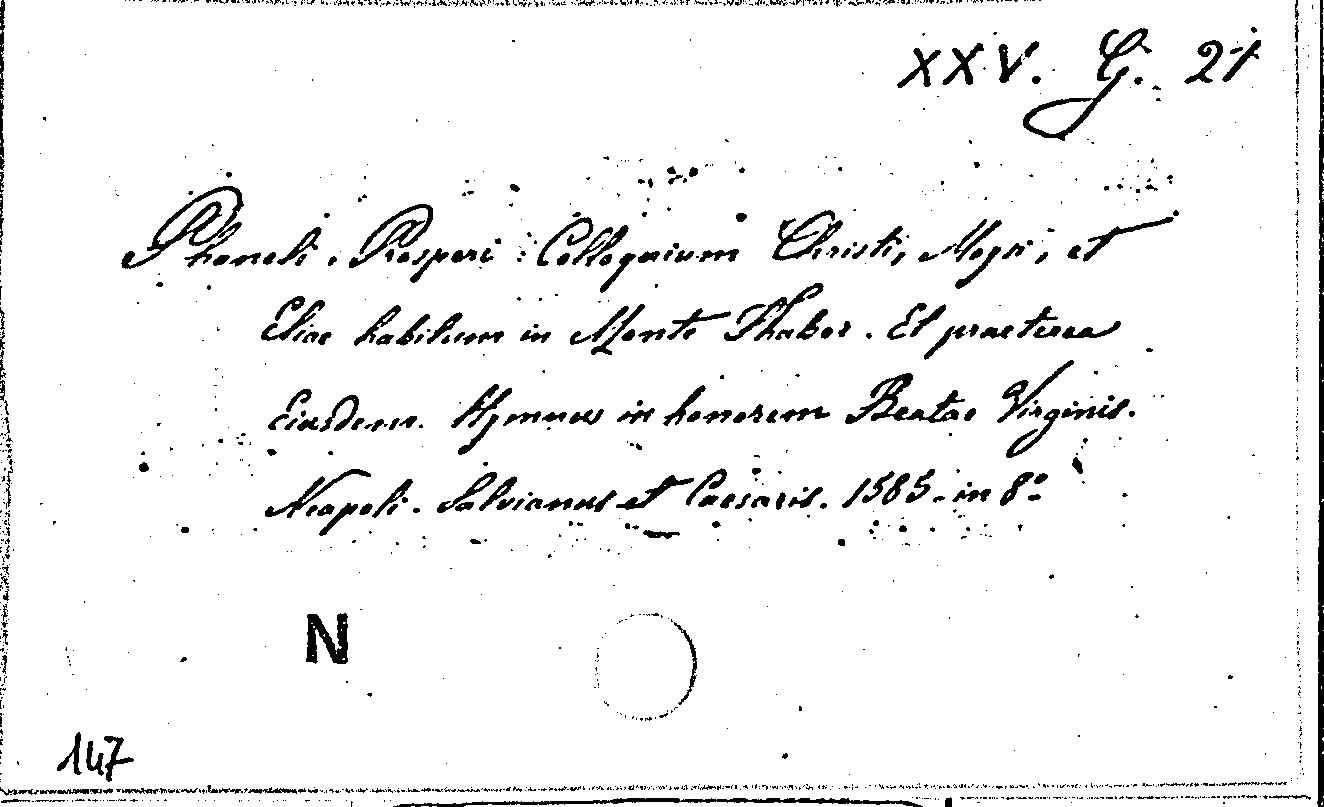 XXV. G. 21
Phaneli. Prosperi: Colloquium Christi, Moysi, et
Eliae habitum in Monte Thabor. Et praeterea
Eiusdem. Hymnus in honorem Beatae Virginis.
Neapoli. Salvianus et Caesaris. 1585. in 8º
N
147